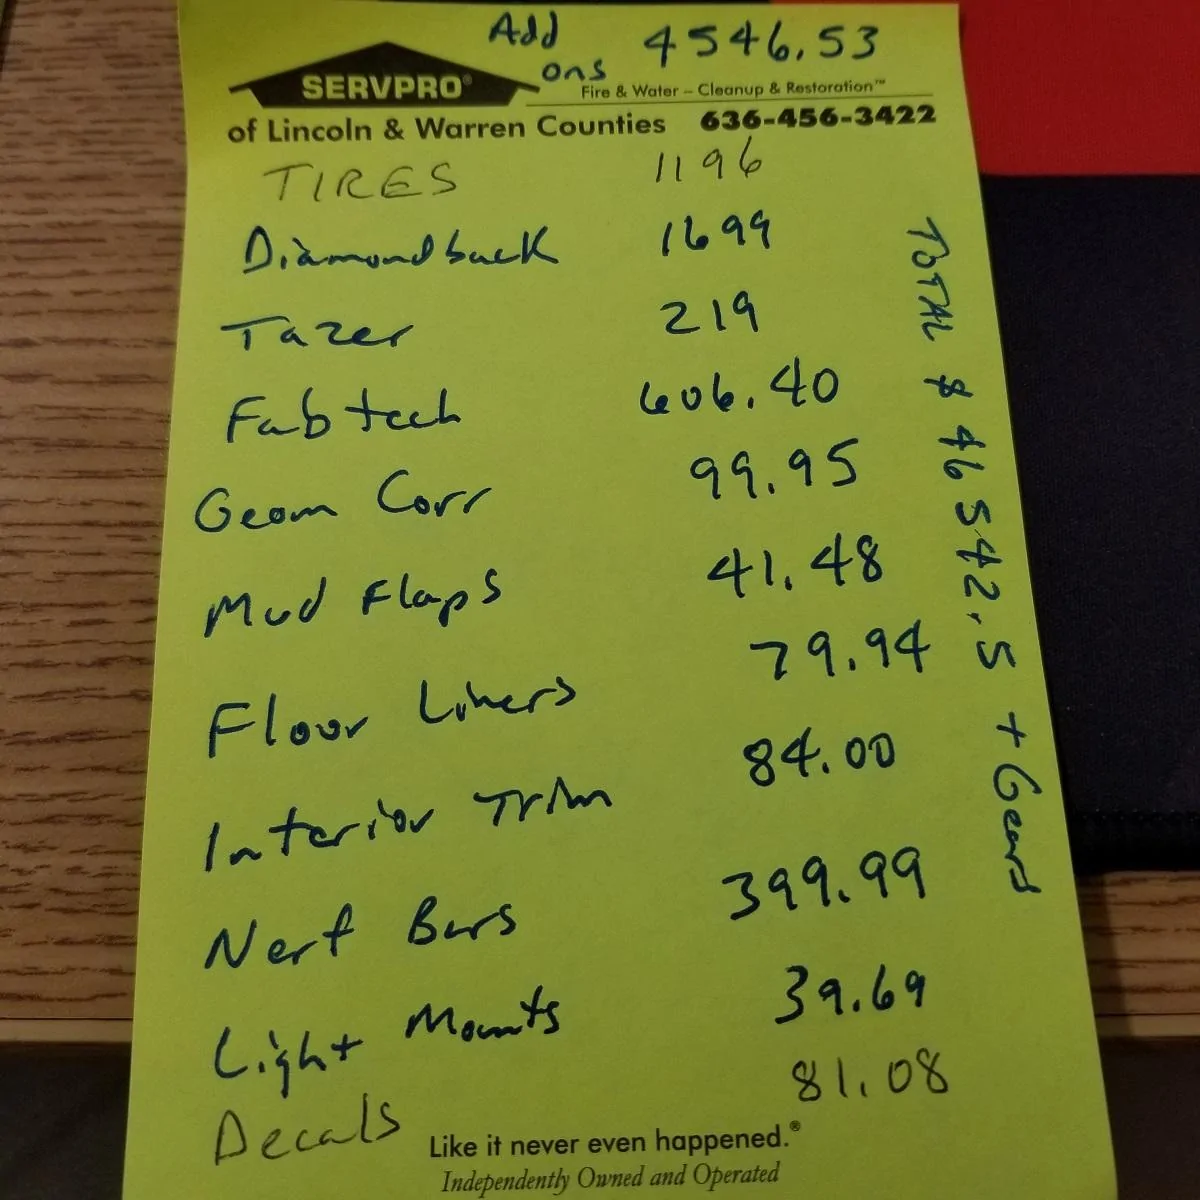 Add ons 4546.53
SERVPRO®
Fire & Water – Cleanup & Restoration™
of Lincoln & Warren Counties 636-456-3422
TIRES 1196
Diamondback 1699
Tazer 219
Fabtech 606.40
Geom Corr 99.95
Mud Flaps 41.48
Floor Liners 79.94
Interior Trim 84.00
Nerf Bars 399.99
Light Mounts 39.69
Decals 81.08
Like it never even happened.®
Independently Owned and Operated
TOTAL $ 46542.5 + Gears